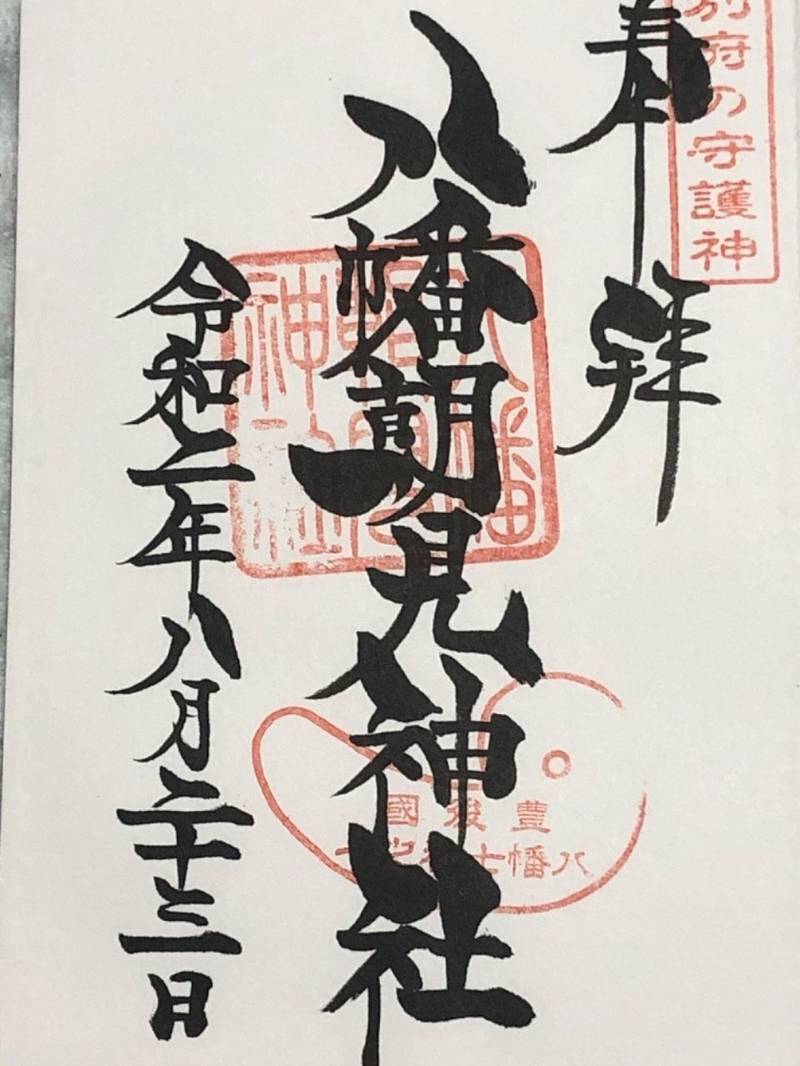 別府の守護神
奉拝
八幡朝見神社
令和二年八月二十三日
八幡朝見神社
豊後國
八幡